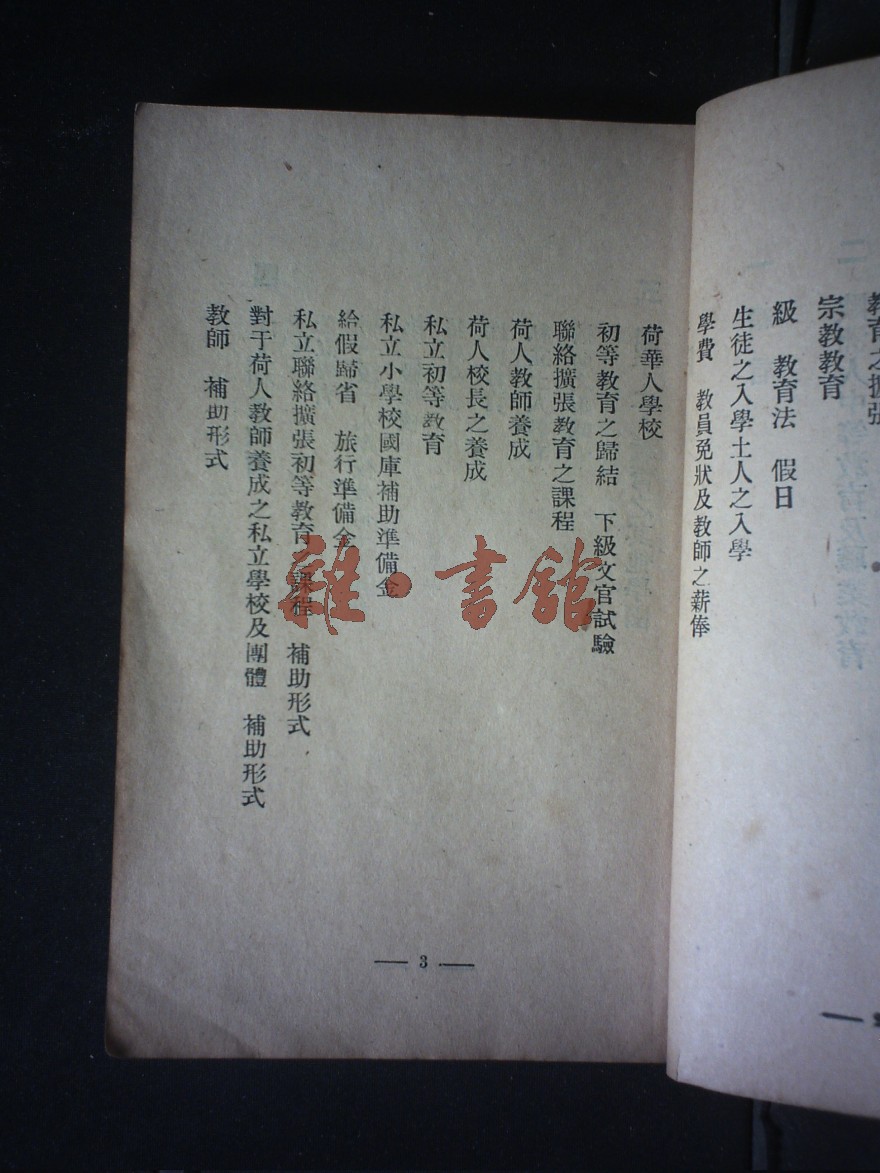 教育之擴張
宗教教育
級　教育法　假日
生徒之入學土人之入學
學費　教員免狀及教師之薪俸
荷華人學校
初等教育之歸結　下級文官試驗
聯絡擴張教育之課程
荷人教師養成
荷人校長之養成
私立初等教育
私立小學校國庫補助準備金
給假歸省　旅行準備金
私立聯絡擴張初等教育　課程　補助形式
對于荷人教師養成之私立學校及團體　補助形式
教師　補助形式
3
雜·書館